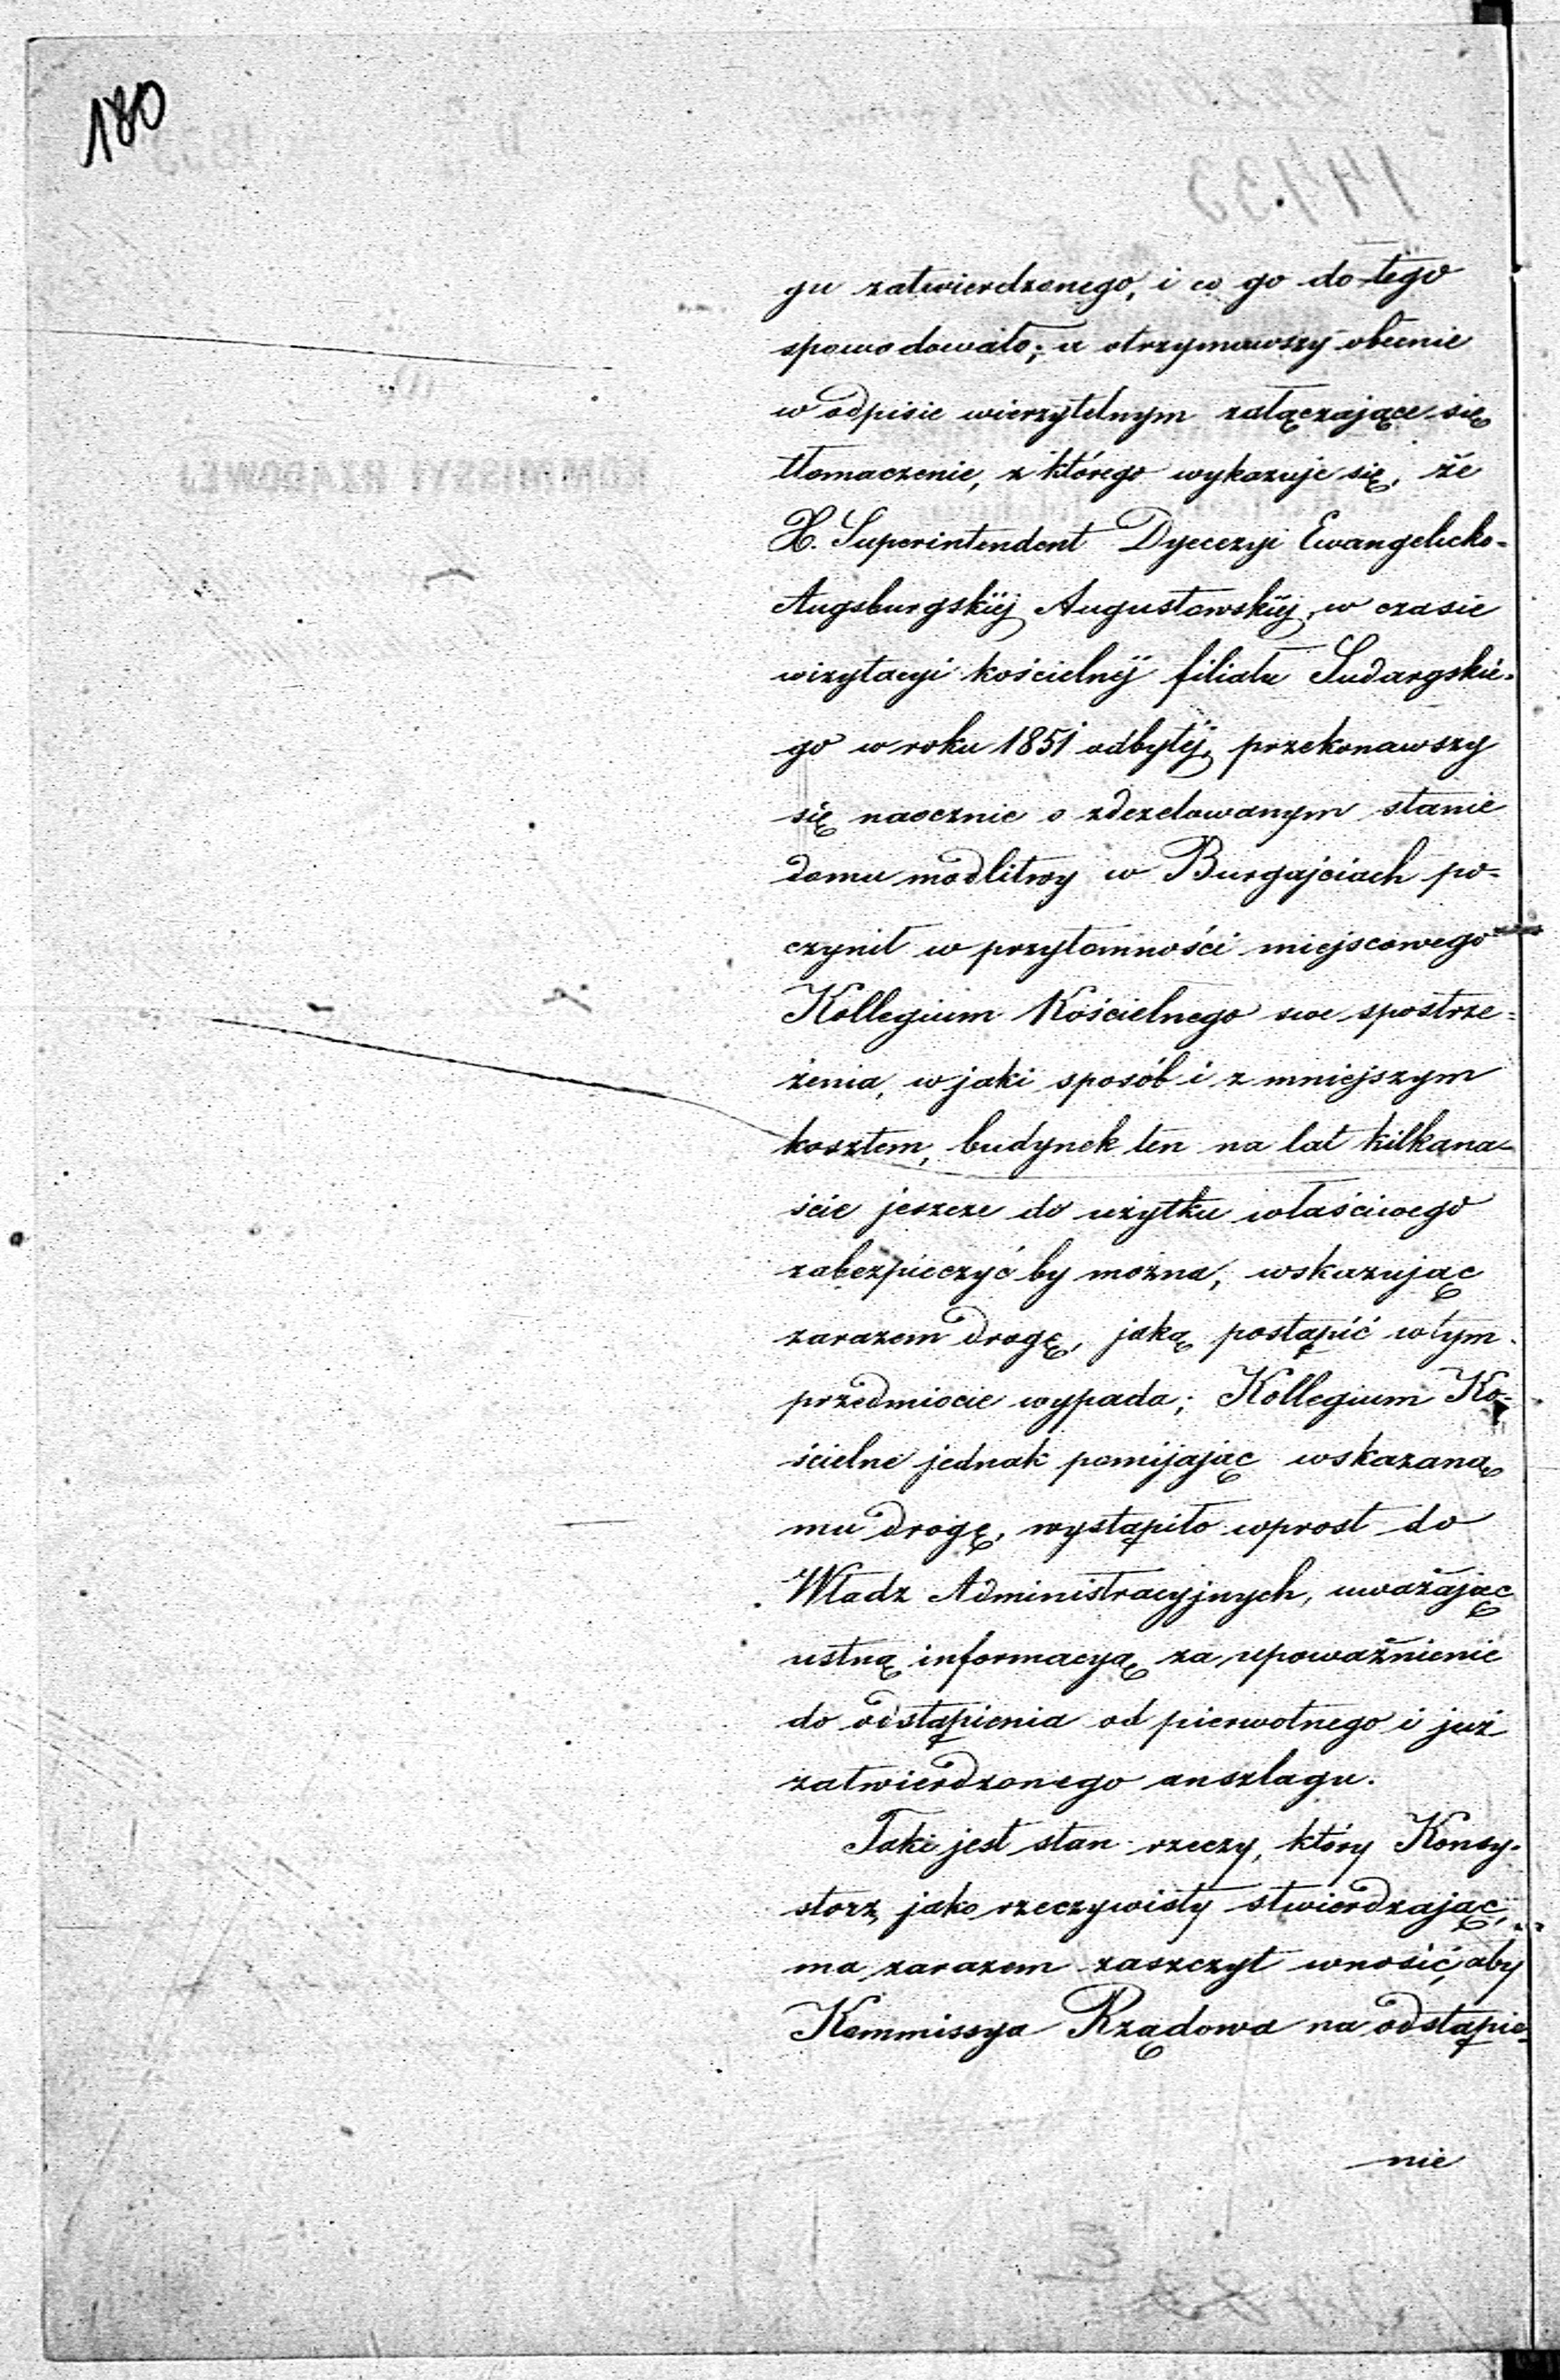 180
gu zatwierdzonego, i co go do tego
spowodowało; a otrzymawszy obecnie
w odpisie wierzytelnym załączające się
tłomaczenie, z którego wykazuje się, że
X. Superintendent Dyecezyi Ewangelicko-
Augsburgskiéj Augustowskiéj, w czasie
wizytacyi kościelnéj filiału Sudargskie-
go w roku 1851 odbytéj, przekonawszy
się naocznie o zdezelowanym stanie
domu modlitwy w Burgajciach po-
czynił w przytomności miejscowego
Kollegium Kościelnego swe spostrze-
żenia, w jaki sposób i z mniejszym
kosztem, budynek ten na lat kilkana-
ście jeszcze do użytku właściwego
zabezpieczyć by można, wskazując
zarazem drogę, jaką postąpić w tym
przedmiocie wypada; Kollegium Ko-
ścielne jednak pomijając wskazaną
mu drogę, wystąpiło wprost do
Władz Administracyjnych, uważając
ustną informacyą za upoważnienie
do odstąpienia od pierwotnego i już
zatwierdzonego anszlagu.
Taki jest stan rzeczy, który Konsy-
storz jako rzeczywisty stwierdzając,
ma zarazem zaszczyt wnosić, aby
Kommissya Rządowa na odstąpie-
nie